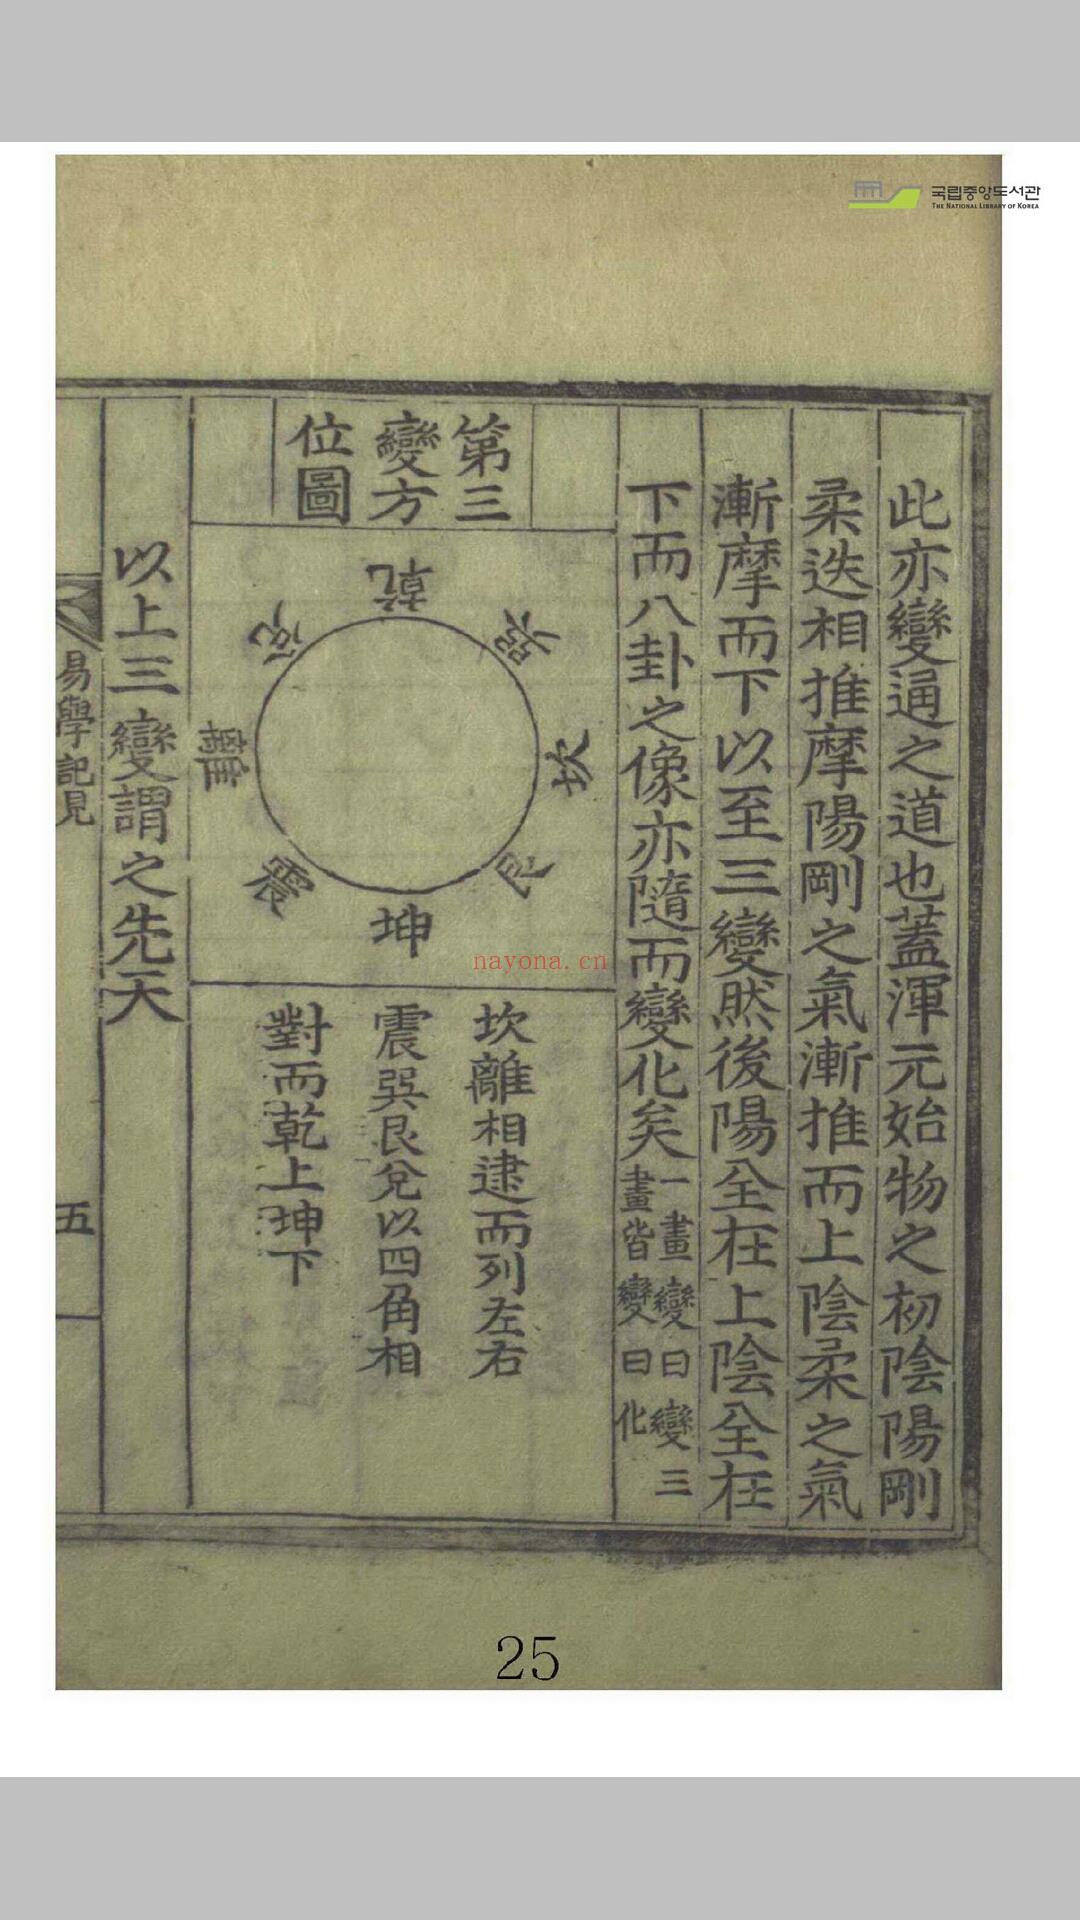 국립중앙도서관
THE NATIONAL LIBRARY OF KOREA
此亦變通之道也蓋渾元始物之初陰陽剛
柔迭相推摩陽剛之氣漸推而上陰柔之氣
漸摩而下以至三變然後陽全在上陰全在
下而八卦之像亦隨而變化矣一畫變曰變三
畫皆變曰化
第三
變方
位圖
乾
巽
坎
艮
坤
震
離
兌
坎離相逮而列左右
震巽艮兌以四角相
對而乾上坤下
以上三變謂之先天
易學記見
五
nayona.cn
25